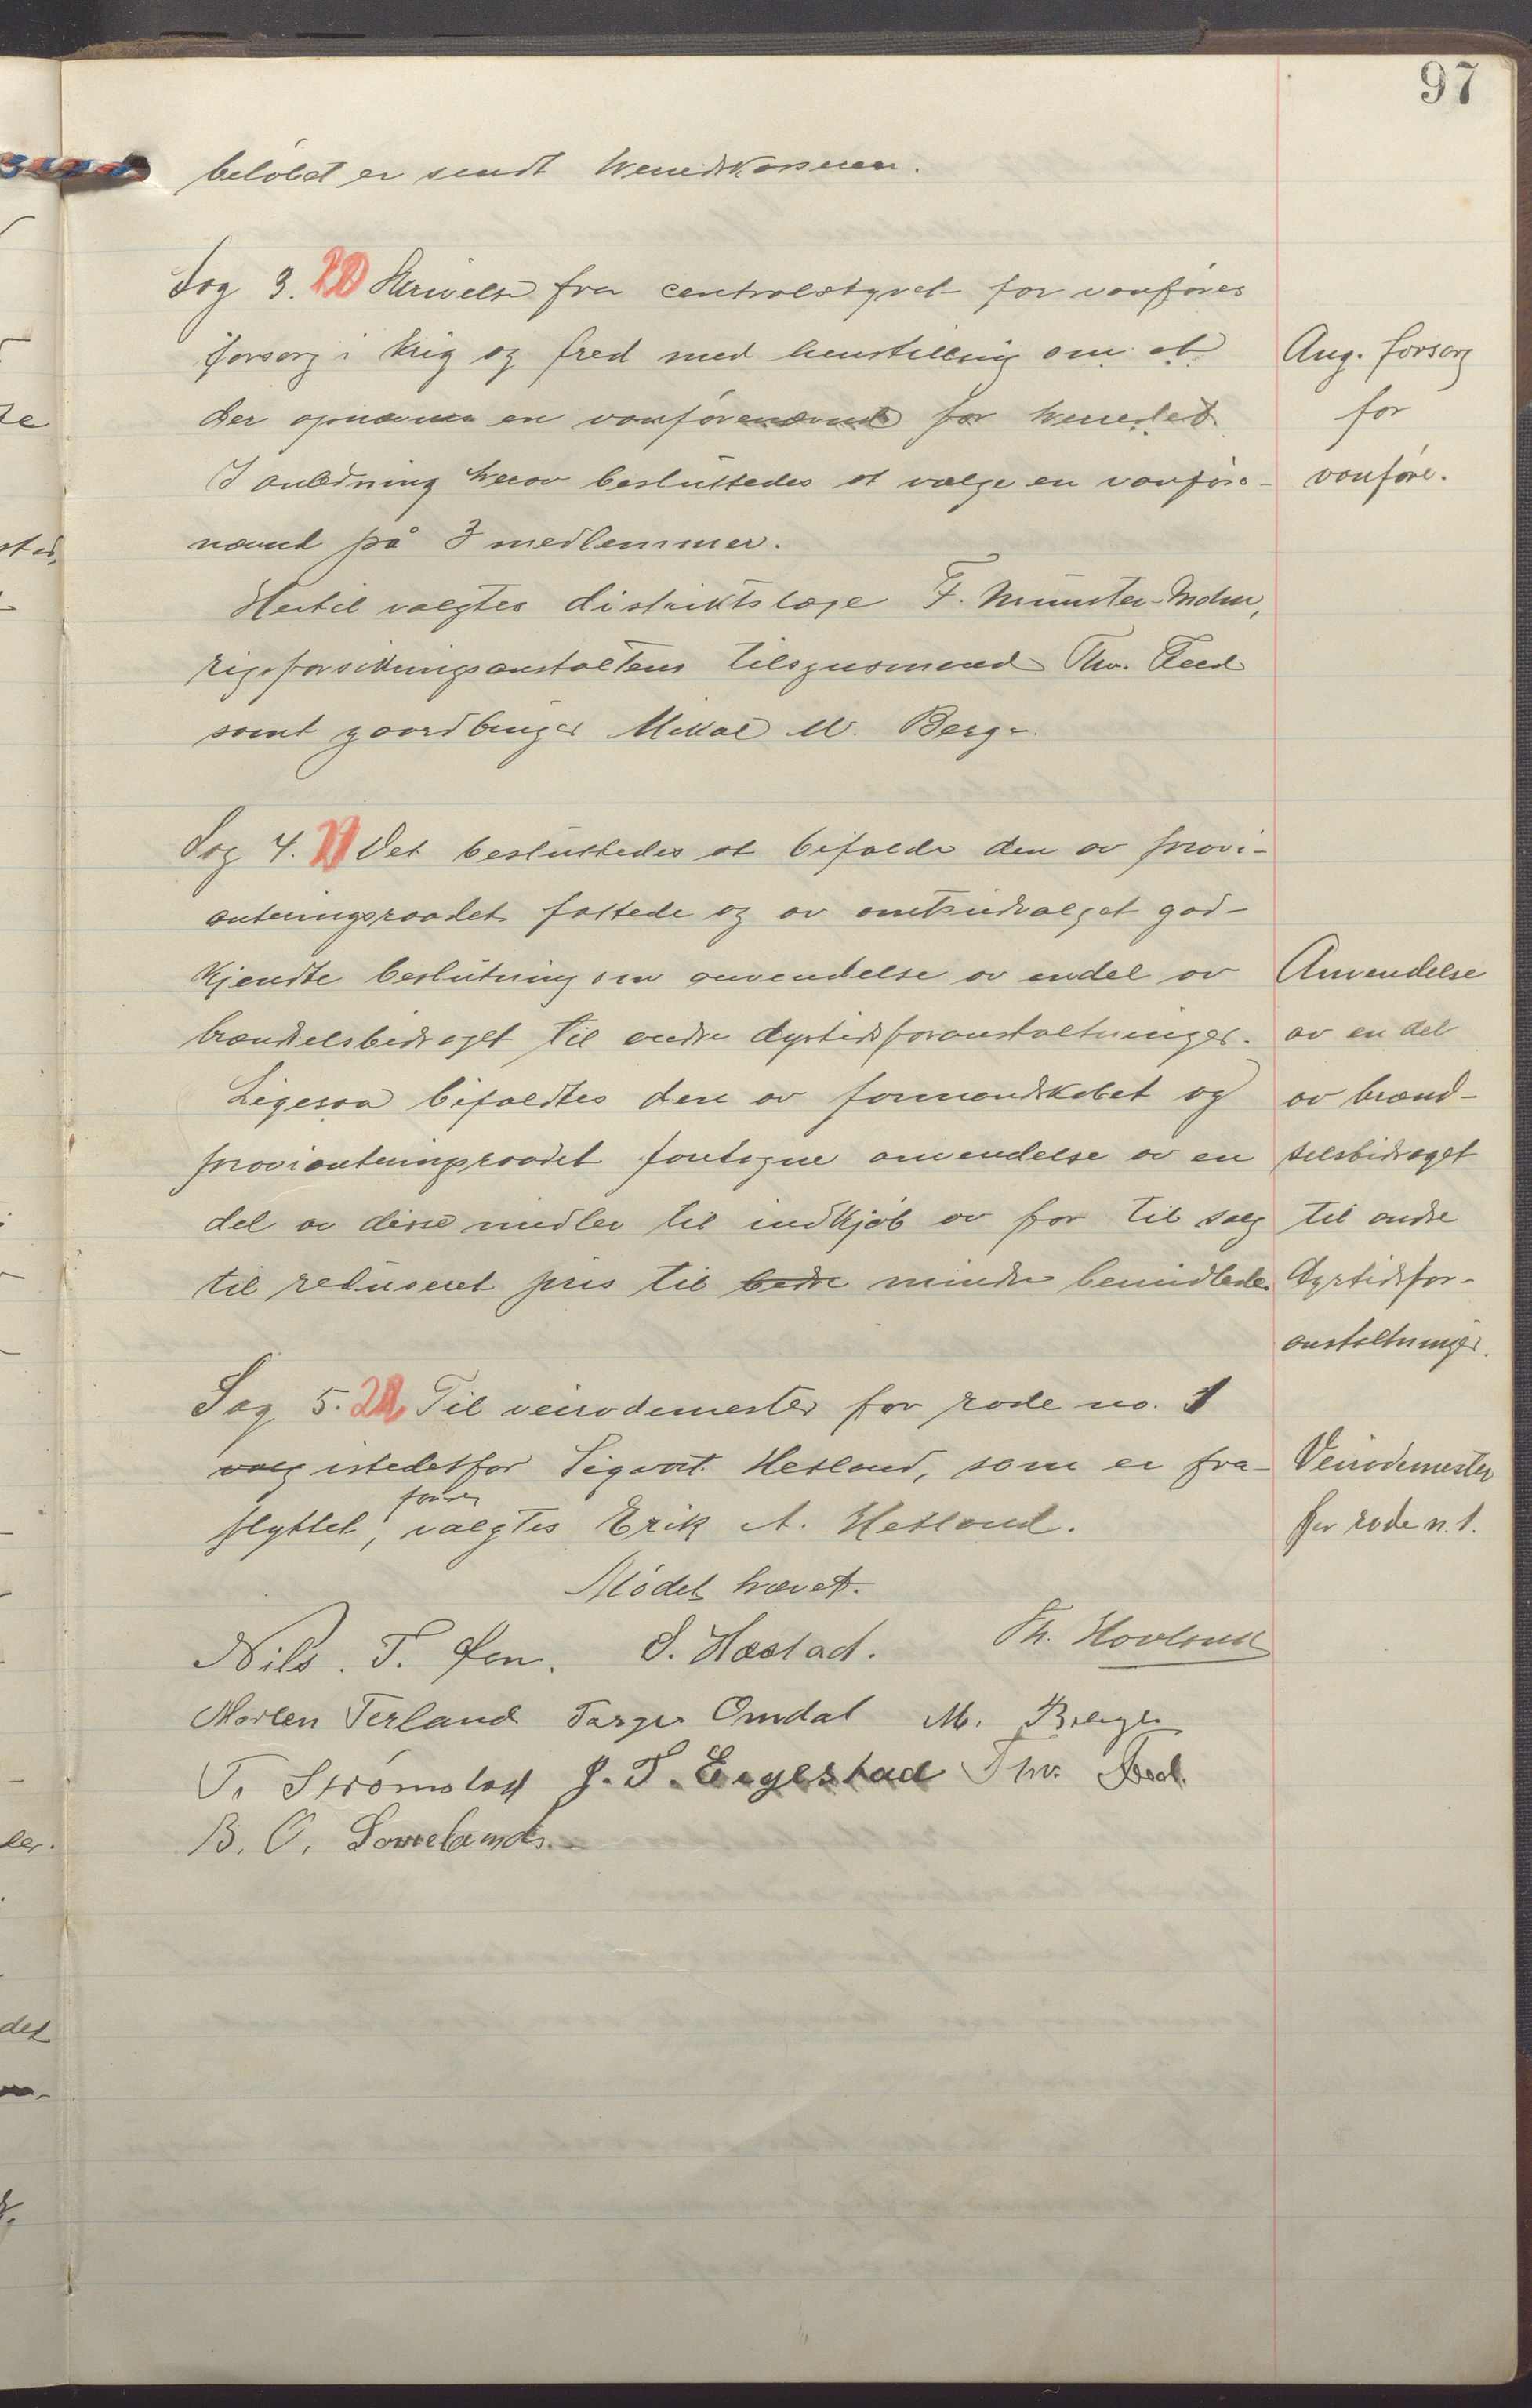 97
beløbet er sendt herredskasseren.
Sag 3. 20 Skrivelse fra centralstyret for vanføres
forsorg i krig og fred med henstilling om at
der opnævnes en vanførenævnd for herredet.
I anledning herav besluttedes at vælge en vanføre-
nævnd på 3 medlemmer.
Hertil valgtes distriktslæge F. Münster-Mohn,
rigsforsikringsanstaltens tilsynsmand Thv. Feed
samt gaardbruger Mikal M. Berge.
Ang. forsorg
for
vanføre.
Sag 4. 21 Det besluttedes at bifalde den av provi-
anteringsraadet fattede og av amtsudvalget god-
kjendte beslutning om anvendelse av endel av
brændselsbidraget til andre dyrtidsforanstaltninger.
Ligesaa bifaldtes den av formandskabet og
provianteringsraadet foretagne anvendelse av en
del av disse midler til indkjøb av for til salg
til reduseret pris til bedre mindre bemidlede.
Anvendelse
av en del
av brænd-
selsbidraget
til andre
dyrtidsfor-
anstaltninger.
Sag 5. 22 Til veirodemester for rode no. 1
valg istedetfor Sigvart Hetland, som er fra-
flyttet, valgtes Erik A. Hetland.
Veirodemester
for rode n. 1.
Mødet hævet.
Nils. T. S. Hæstad. Th. Hovland
Morten Terland Targer Omdal M. Berge
T. Strømstad J. T. Eigestad Thv. Feed.
B. O.